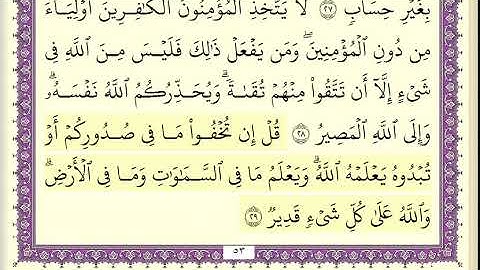 بِغَيْرِ حِسَابٍ ٢٧ لَّا يَتَّخِذِ ٱلْمُؤْمِنُونَ ٱلْكَٰفِرِينَ أَوْلِيَآءَ
مِن دُونِ ٱلْمُؤْمِنِينَۖ وَمَن يَفْعَلْ ذَٰلِكَ فَلَيْسَ مِنَ ٱللَّهِ فِى
شَىْءٍ إِلَّآ أَن تَتَّقُوا۟ مِنْهُمْ تُقَىٰةًۗ وَيُحَذِّرُكُمُ ٱللَّهُ نَفْسَهُۥۗ
وَإِلَى ٱللَّهِ ٱلْمَصِيرُ ٢٨ قُلْ إِن تُخْفُوا۟ مَا فِى صُدُورِكُمْ أَوْ
تُبْدُوهُ يَعْلَمْهُ ٱللَّهُۗ وَيَعْلَمُ مَا فِى ٱلسَّمَٰوَٰتِ وَمَا فِى ٱلْأَرْضِۗ
وَٱللَّهُ عَلَىٰ كُلِّ شَىْءٍ قَدِيرٌ ٢٩
٥٣